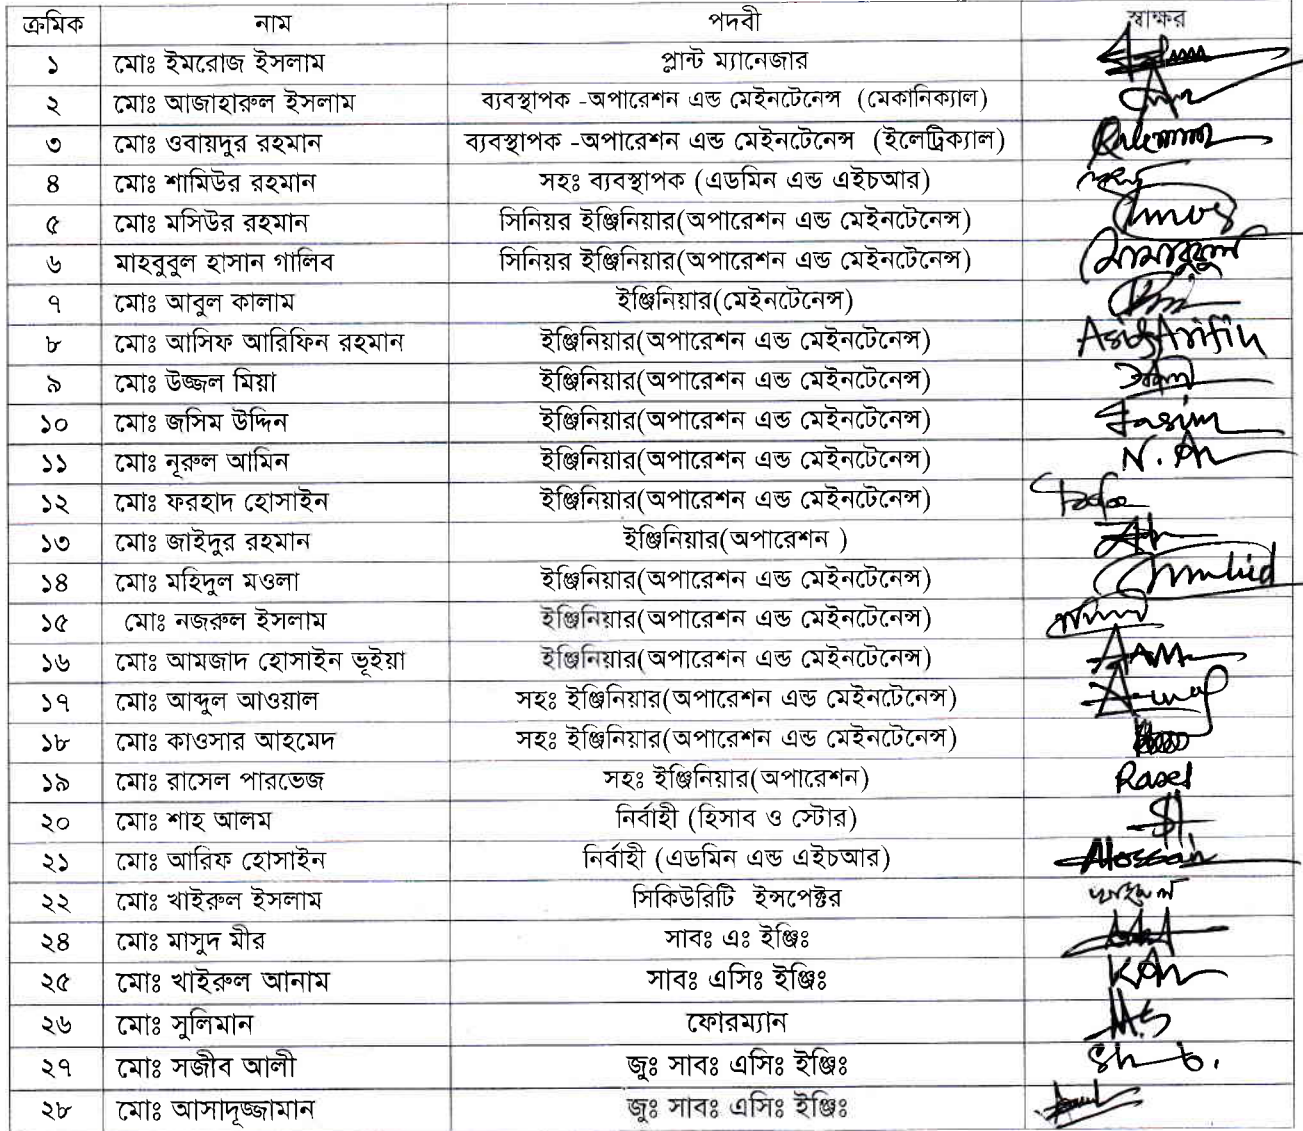 ক্রমিক নাম পদবী স্বাক্ষর
১ মোঃ ইমরোজ ইসলাম প্লান্ট ম্যানেজার
২ মোঃ আজাহারুল ইসলাম ব্যবস্থাপক -অপারেশন এন্ড মেইনটেনেন্স (মেকানিক্যাল)
৩ মোঃ ওবায়দুর রহমান ব্যবস্থাপক -অপারেশন এন্ড মেইনটেনেন্স (ইলেট্রিক্যাল)
৪ মোঃ শামিউর রহমান সহঃ ব্যবস্থাপক (এডমিন এন্ড এইচআর)
৫ মোঃ মসিউর রহমান সিনিয়র ইঞ্জিনিয়ার(অপারেশন এন্ড মেইনটেনেন্স)
৬ মাহবুবুল হাসান গালিব সিনিয়র ইঞ্জিনিয়ার(অপারেশন এন্ড মেইনটেনেন্স)
৭ মোঃ আবুল কালাম ইঞ্জিনিয়ার(মেইনটেনেন্স)
৮ মোঃ আসিফ আরিফিন রহমান ইঞ্জিনিয়ার(অপারেশন এন্ড মেইনটেনেন্স) Asif Arifin
৯ মোঃ উজ্জল মিয়া ইঞ্জিনিয়ার(অপারেশন এন্ড মেইনটেনেন্স)
১০ মোঃ জসিম উদ্দিন ইঞ্জিনিয়ার(অপারেশন এন্ড মেইনটেনেন্স) Jasim
১১ মোঃ নূরুল আমিন ইঞ্জিনিয়ার(অপারেশন এন্ড মেইনটেনেন্স)
১২ মোঃ ফরহাদ হোসাইন ইঞ্জিনিয়ার(অপারেশন এন্ড মেইনটেনেন্স)
১৩ মোঃ জাইদুর রহমান ইঞ্জিনিয়ার(অপারেশন )
১৪ মোঃ মহিদুল মওলা ইঞ্জিনিয়ার(অপারেশন এন্ড মেইনটেনেন্স)
১৫ মোঃ নজরুল ইসলাম ইঞ্জিনিয়ার(অপারেশন এন্ড মেইনটেনেন্স)
১৬ মোঃ আমজাদ হোসাইন ভূইয়া ইঞ্জিনিয়ার(অপারেশন এন্ড মেইনটেনেন্স)
১৭ মোঃ আব্দুল আওয়াল সহঃ ইঞ্জিনিয়ার(অপারেশন এন্ড মেইনটেনেন্স)
১৮ মোঃ কাওসার আহমেদ সহঃ ইঞ্জিনিয়ার(অপারেশন এন্ড মেইনটেনেন্স)
১৯ মোঃ রাসেল পারভেজ সহঃ ইঞ্জিনিয়ার(অপারেশন) Rasel
২০ মোঃ শাহ আলম নির্বাহী (হিসাব ও স্টোর)
২১ মোঃ আরিফ হোসাইন নির্বাহী (এডমিন এন্ড এইচআর)
২২ মোঃ খাইরুল ইসলাম সিকিউরিটি ইন্সপেক্টর
২৪ মোঃ মাসুদ মীর সাবঃ এঃ ইঞ্জিঃ
২৫ মোঃ খাইরুল আনাম সাবঃ এসিঃ ইঞ্জিঃ
২৬ মোঃ সুলিমান ফোরম্যান
২৭ মোঃ সজীব আলী জুঃ সাবঃ এসিঃ ইঞ্জিঃ
২৮ মোঃ আসাদূজ্জামান জুঃ সাবঃ এসিঃ ইঞ্জিঃ